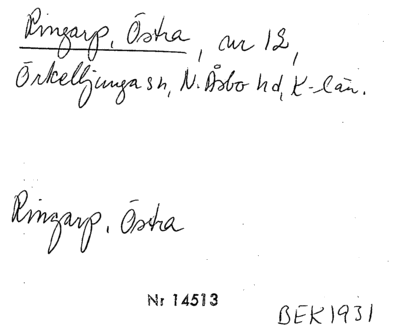 Ringarp, Östra, nr 12,
Örkelljunga sn, N. Åsbo hd, K-län.
Ringarp, Östra
Nr 14513
BEK1931